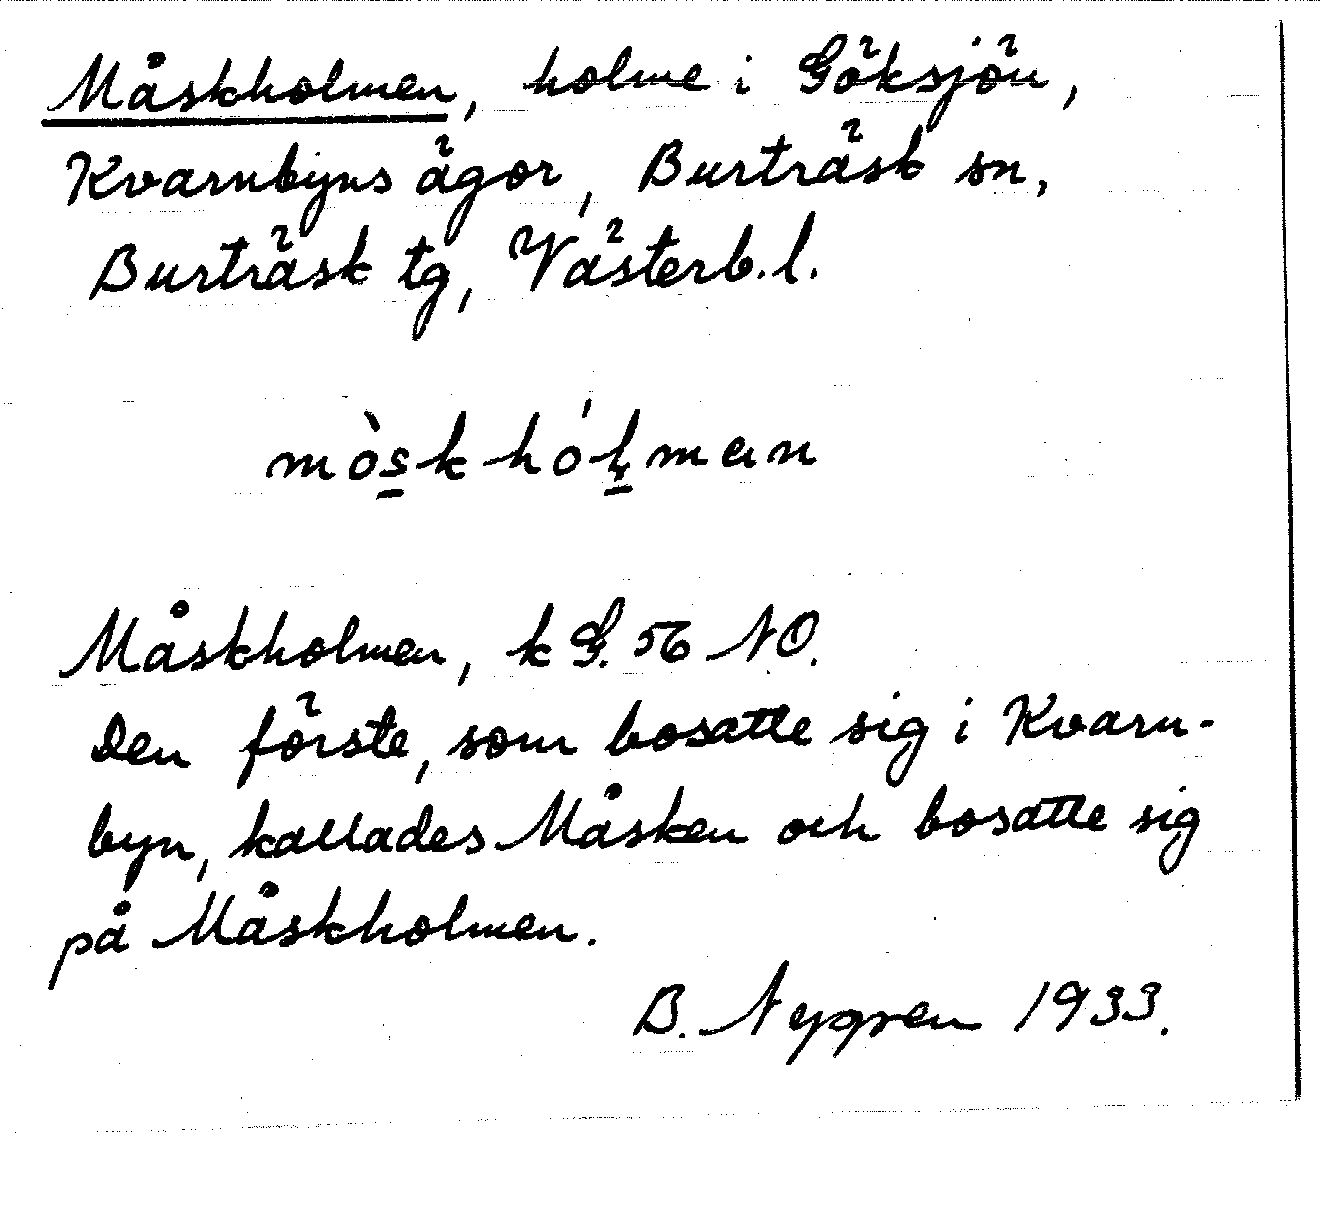 Måskholmen, holme i Göksjön,
Kvarnbyns ägor, Burträsk sn,
Burträsk tg, Västerb.l.
mòskhólmən
Måskholmen, k G. 56 NO.
Den förste, som bosatte sig i Kvarn-
byn, kallades Måsken och bosatte sig
på Måskholmen.
B. Nygren 1933.